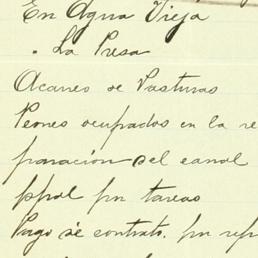 En Agua Vieja
" La Presa
Acarreo de Pasturas
Peones ocupados en la re
paración del canal
ppral por tareas
Pago de contrato. por